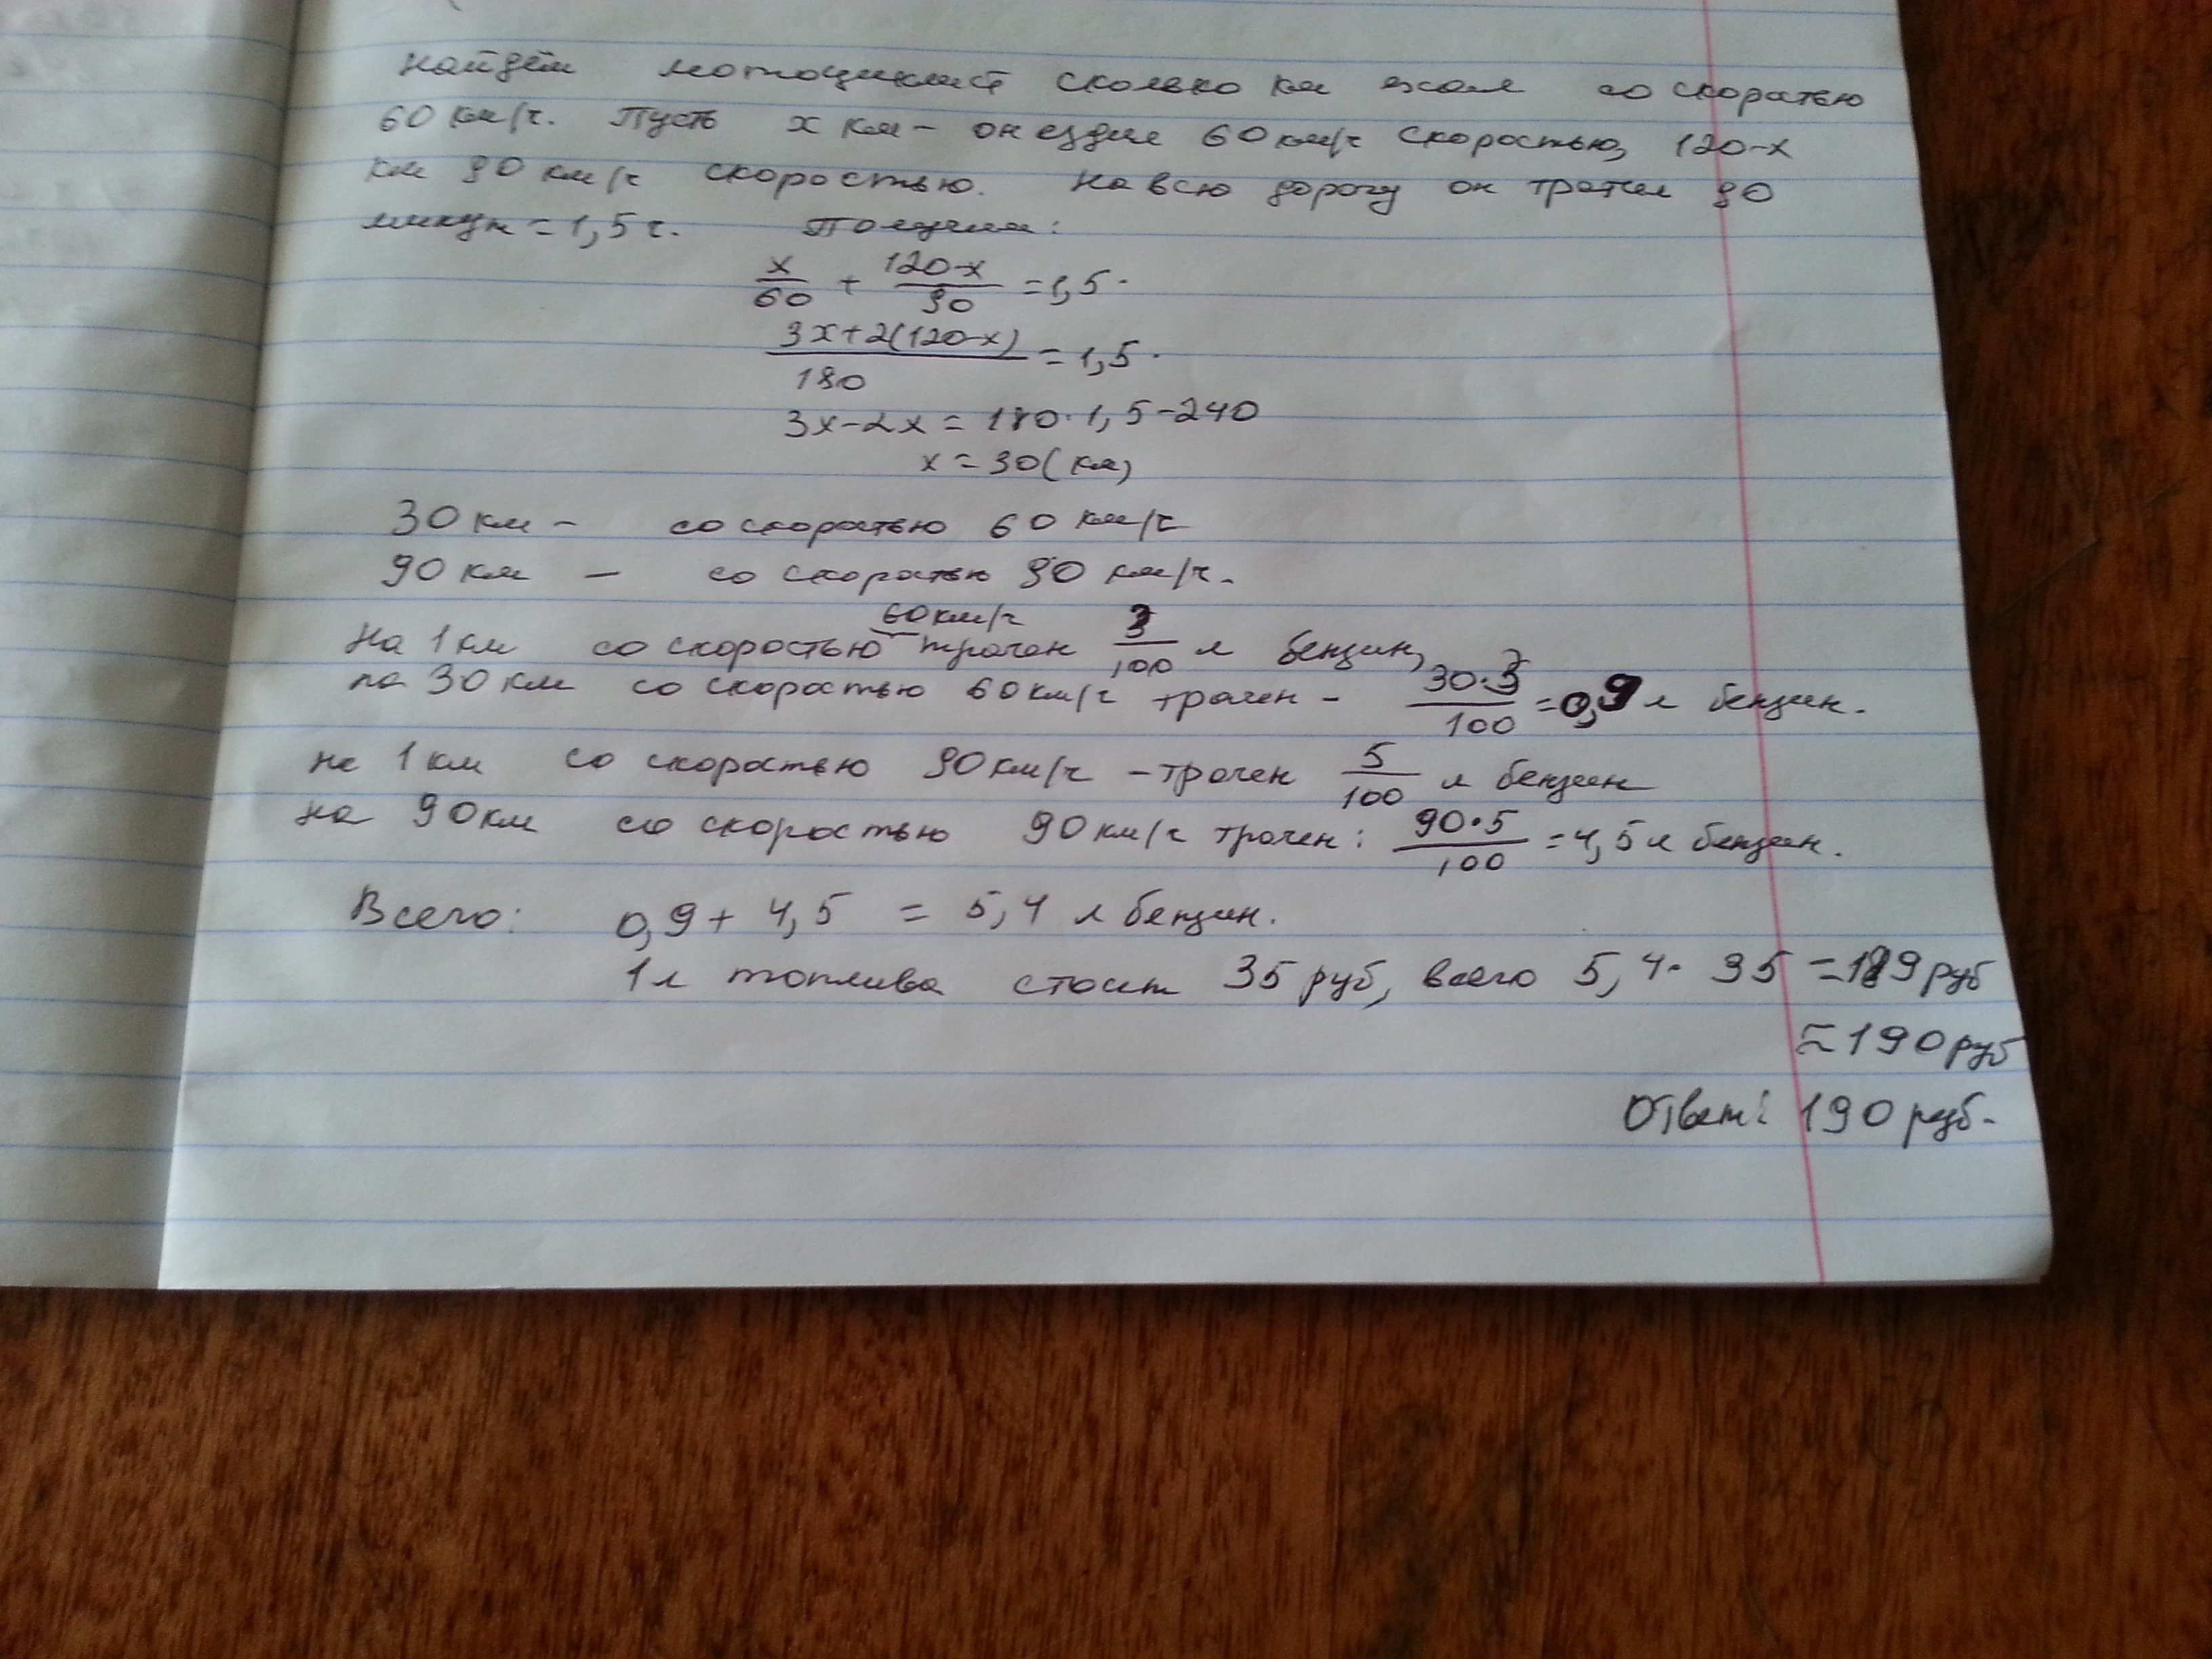 Найдём мотоциклист сколько км ехал со скоратью
60 км/ч. Пусть x км - он ездил 60 км/ч скоростью, 120-x
км 90 км/ч скоростью. На всю дорогу он тратил 90
минут = 1,5 ч. Получим:
x/60 + (120-x)/90 = 1,5.
(3x+2(120-x))/180 = 1,5.
3x-2x = 180·1,5-240
x = 30(км)
30 км - со скоростью 60 км/ч
90 км - со скоратью 90 км/ч.
60 км/ч
На 1 км со скоростью трачен 3/100 л бензин,
на 30 км со скоростью 60 км/ч трачен - (30·3)/100 = 0,9 л бензин.
на 1 км со скоростью 90 км/ч - трачен 5/100 л бензин
на 90 км со скоростью 90 км/ч трачен: (90·5)/100 = 4,5 л бензин.
Всего: 0,9 + 4,5 = 5,4 л бензин.
1 л топлива стоит 35 руб, всего 5,4· 35 = 189 руб
≈ 190 руб
Ответ: 190 руб.